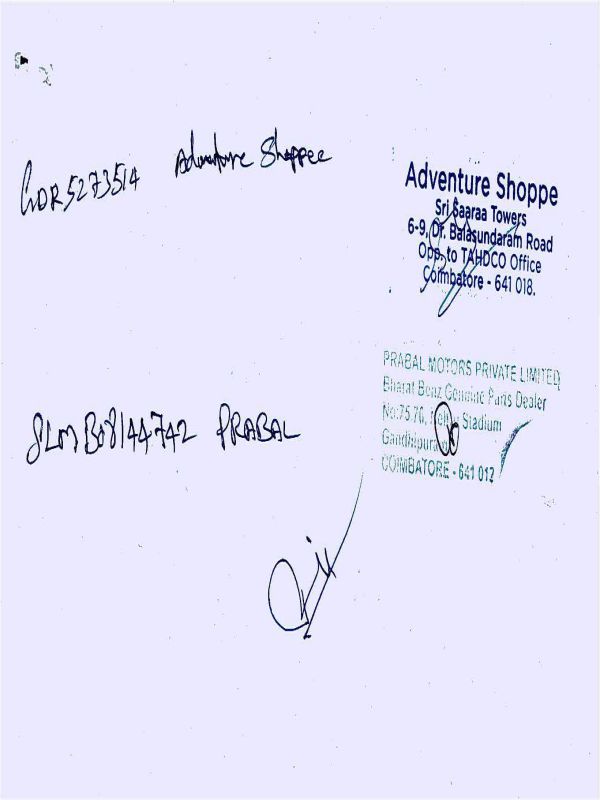 GOR5273514 Adventure Shoppee
Adventure Shoppe
Sri Saaraa Towers
6-9, Dr. Balasundaram Road
Opp. to TAHDCO Office
Coimbatore - 641 018.
PRABAL MOTORS PRIVATE LIMITED
Bharat Benz Genuine Parts Dealer
No:75,76, Nehru Stadium
Gandhipuram
COIMBATORE - 641 012
SLMB08144742 PRABAL